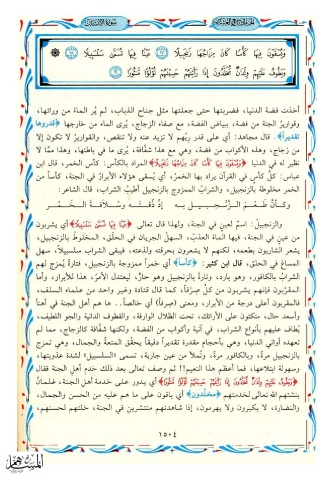 وَيُسْقَوْنَ فِيهَا كَأْسًا كَانَ مِزَاجُهَا زَنجَبِيلًا ﴿١٧﴾ عَيْنًا فِيهَا تُسَمَّىٰ سَلْسَبِيلًا ﴿١٨﴾
وَيَطُوفُ عَلَيْهِمْ وِلْدَانٌ مُّخَلَّدُونَ إِذَا رَأَيْتَهُمْ حَسِبْتَهُمْ لُؤْلُؤًا مَّنثُورًا ﴿١٩﴾
أخذت فضة الدنيا، فضربتها حتى جعلتها مثل جناح الذباب، لم يُر الماء من ورائها،
وقوارير الجنة من فضة، ببياض الفضة، مع صفاء الزجاج، يُرى الماء من خارجها ﴿قدروها
تقديراً﴾. قال مجاهد: أي على قدر ريِّهم لا تزيد عنه ولا تنقص، والقوارير لا تكون إلا
من زجاج، وهذه الأكواب من فضة، وهي مع هذا شفَّافة، يُرى ما في باطنها، وهذا ممَّا لا
نظير له في الدنيا ﴿وَيُسْقَوْنَ فِيهَا كَأْسًا كَانَ مِزَاجُهَا زَنجَبِيلًا﴾ المراد بالكأس: كأس الخمر، قال ابن
عباس: كلُّ كأسٍ في القرآن يراد بها الخمرُ، أي يُسقى هؤلاء الأبرارُ في الجنة، كأساً من
الخمر مخلوطة بالزنجبيل، والشرابُ الممزوج بالزنجبيل أطيبُ الشراب، قال الشاعر:
وكـأنَّ طـعـم الـزَّنْـجـبـيـل بـه إذْ ذُقْـتـه وسُـلافـة الـخـمـر
والزنجبيلُ: اسمٌ لعينٍ في الجنة، ولهذا قال تعالى ﴿عَيْنًا فِيهَا تُسَمَّىٰ سَلْسَبِيلًا﴾ أي يشربون
من عينٍ في الجنة، فيها الماءُ العذبُ، السهلُ الجريان في الحلق، المخلوطُ بالزنجبيل،
يشعر الشاربون بطعمه، لكنهم لا يشعرون بحرقته ولذعته، فيبقى الشراب سلسبيلاً، سهل
المساغ في الحلق، قال ابن كثير: ﴿كأساً﴾ أي خمراً ممزوجة بالزنجبيل، فتارةً يُمزج لهم
الشراب بالكافور، وهو بارد، وتارةً بالزنجبيل وهو حارٌّ، ليعتدل الأمرُ، هذا للأبرار، وأما
المقرَّبون فإنهم يشربون من كلٍّ صِرْفاً، كما قال قتادة وغير واحد من علماء السلف،
فالمقربون أعلى درجة من الأبرار، ومعنى (صِرفاً) أي خالصاً.. ها هم أهل الجنة في أهنأ
وأسعد حال، متكئون على الأرائك، تحت الظلال الوارفة، والقطوف الدانية والجو اللطيف،
يُطاف عليهم بأنواع الشراب، في آنية وأكواب من الفضة، ولكنها شفَّافة كالزجاج، مما لم
تعهده أواني الدنيا، وهي بأحجام مقدرة تقديراً دقيقاً يحقِّق المتعةَ والجمال، وهي تمزج
بالزنجبيل مرةً، وبالكافور مرةً، وتُملأ من عين جارية، تسمى (السلسبيل) لشدة عذوبتها،
وسهولة ابتلاعها، فما أعظم هذا النعيم!! ثم وصف تعالى بعد ذلك خدم أهل الجنة فقال
﴿وَيَطُوفُ عَلَيْهِمْ وِلْدَانٌ مُّخَلَّدُونَ إِذَا رَأَيْتَهُمْ حَسِبْتَهُمْ لُؤْلُؤًا مَّنثُورًا﴾ أي يدور على خدمة أهل الجنة، غلمانٌ
ينشئهم الله تعالى لخدمتهم ﴿مخلدون﴾ أي باقون على ما هم عليه من الحسن والجمال،
والنضارة، لا يكبرون ولا يهرمون، إذا شاهدتهم منتشرين في الجنة، خلتهم لحسنهم،
١٥٠٤